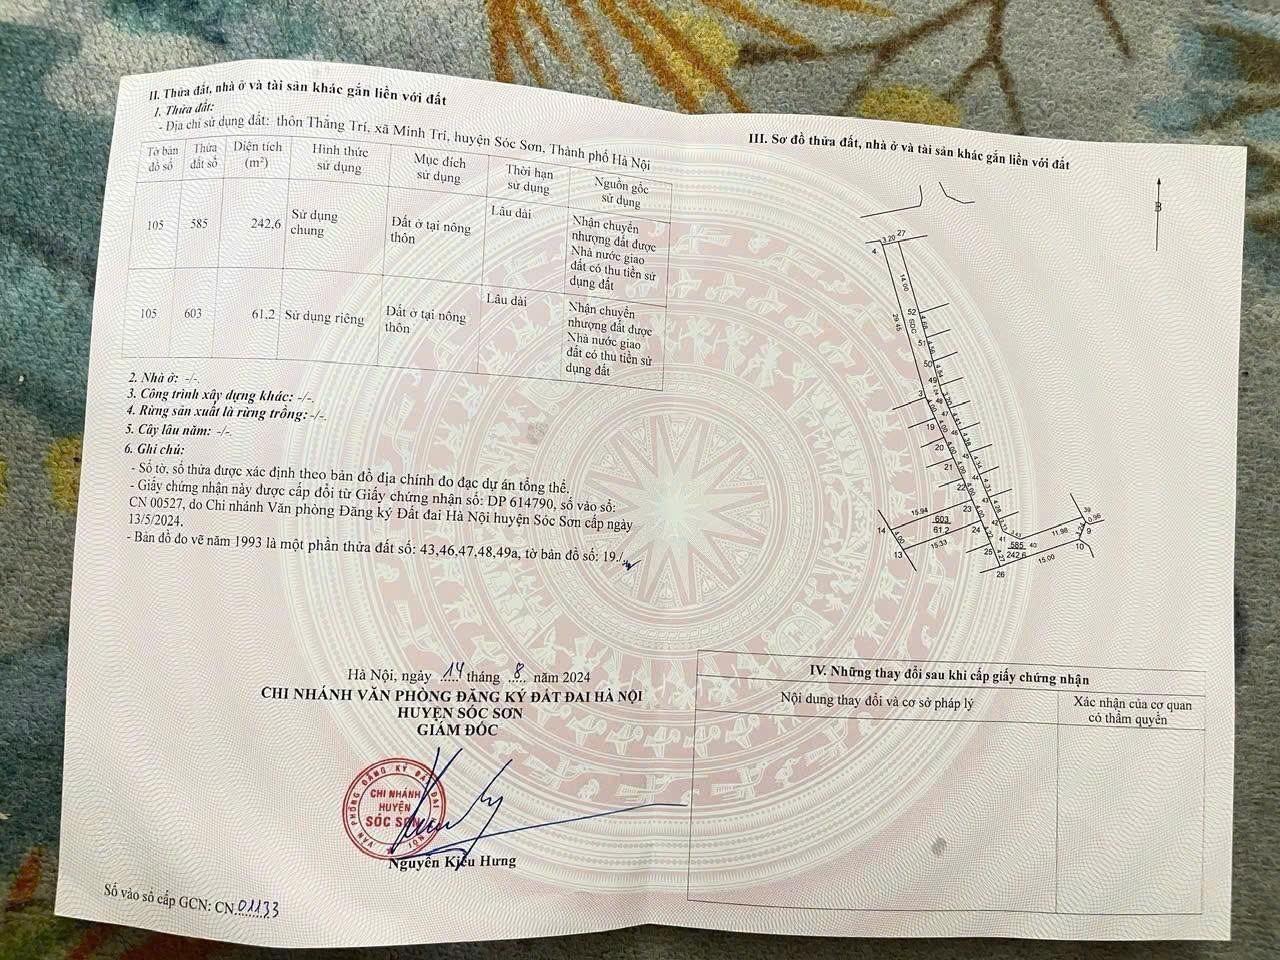 II. Thửa đất, nhà ở và tài sản khác gắn liền với đất
1. Thửa đất:
- Địa chỉ sử dụng đất: thôn Thắng Trí, xã Minh Trí, huyện Sóc Sơn, Thành phố Hà Nội
Tờ bản đồ số | Thửa đất số | Diện tích (m²) | Hình thức sử dụng | Mục đích sử dụng | Thời hạn sử dụng | Nguồn gốc sử dụng
105 | 585 | 242,6 | Sử dụng chung | Đất ở tại nông thôn | Lâu dài | Nhận chuyển nhượng đất được Nhà nước giao đất có thu tiền sử dụng đất
105 | 603 | 61,2 | Sử dụng riêng | Đất ở tại nông thôn | Lâu dài | Nhận chuyển nhượng đất được Nhà nước giao đất có thu tiền sử dụng đất
2. Nhà ở: -/-.
3. Công trình xây dựng khác: -/-.
4. Rừng sản xuất là rừng trồng: -/-.
5. Cây lâu năm: -/-.
6. Ghi chú:
- Số tờ, số thửa được xác định theo bản đồ địa chính đo đạc dự án tổng thể.
- Giấy chứng nhận này được cấp đổi từ Giấy chứng nhận số: DP 614790, số vào sổ:
CN 00527, do Chi nhánh Văn phòng Đăng ký Đất đai Hà Nội huyện Sóc Sơn cấp ngày
13/5/2024.
- Bản đồ đo vẽ năm 1993 là một phần thửa đất số: 43,46,47,48,49a, tờ bản đồ số: 19./.
Hà Nội, ngày 14 tháng 8 năm 2024
CHI NHÁNH VĂN PHÒNG ĐĂNG KÝ ĐẤT ĐAI HÀ NỘI
HUYỆN SÓC SƠN
GIÁM ĐỐC
VĂN PHÒNG ĐĂNG KÝ ĐẤT ĐAI HÀ NỘI
CHI NHÁNH
HUYỆN
SÓC SƠN
Nguyễn Kiều Hưng
Số vào sổ cấp GCN: CN.01133
III. Sơ đồ thửa đất, nhà ở và tài sản khác gắn liền với đất
B
4 3.20 27
14.00
29.45
52
SDC
4.68
51
4.56
50
4.54
49
3
4.00
19
4.00
20
21
22
15.94
23
14
603
61.2
24
4.00
15.33
13
25
4.27
26
41
585
242.6
40
11.98
39
0.96
9
10
15.00
IV. Những thay đổi sau khi cấp giấy chứng nhận
Nội dung thay đổi và cơ sở pháp lý | Xác nhận của cơ quan có thẩm quyền